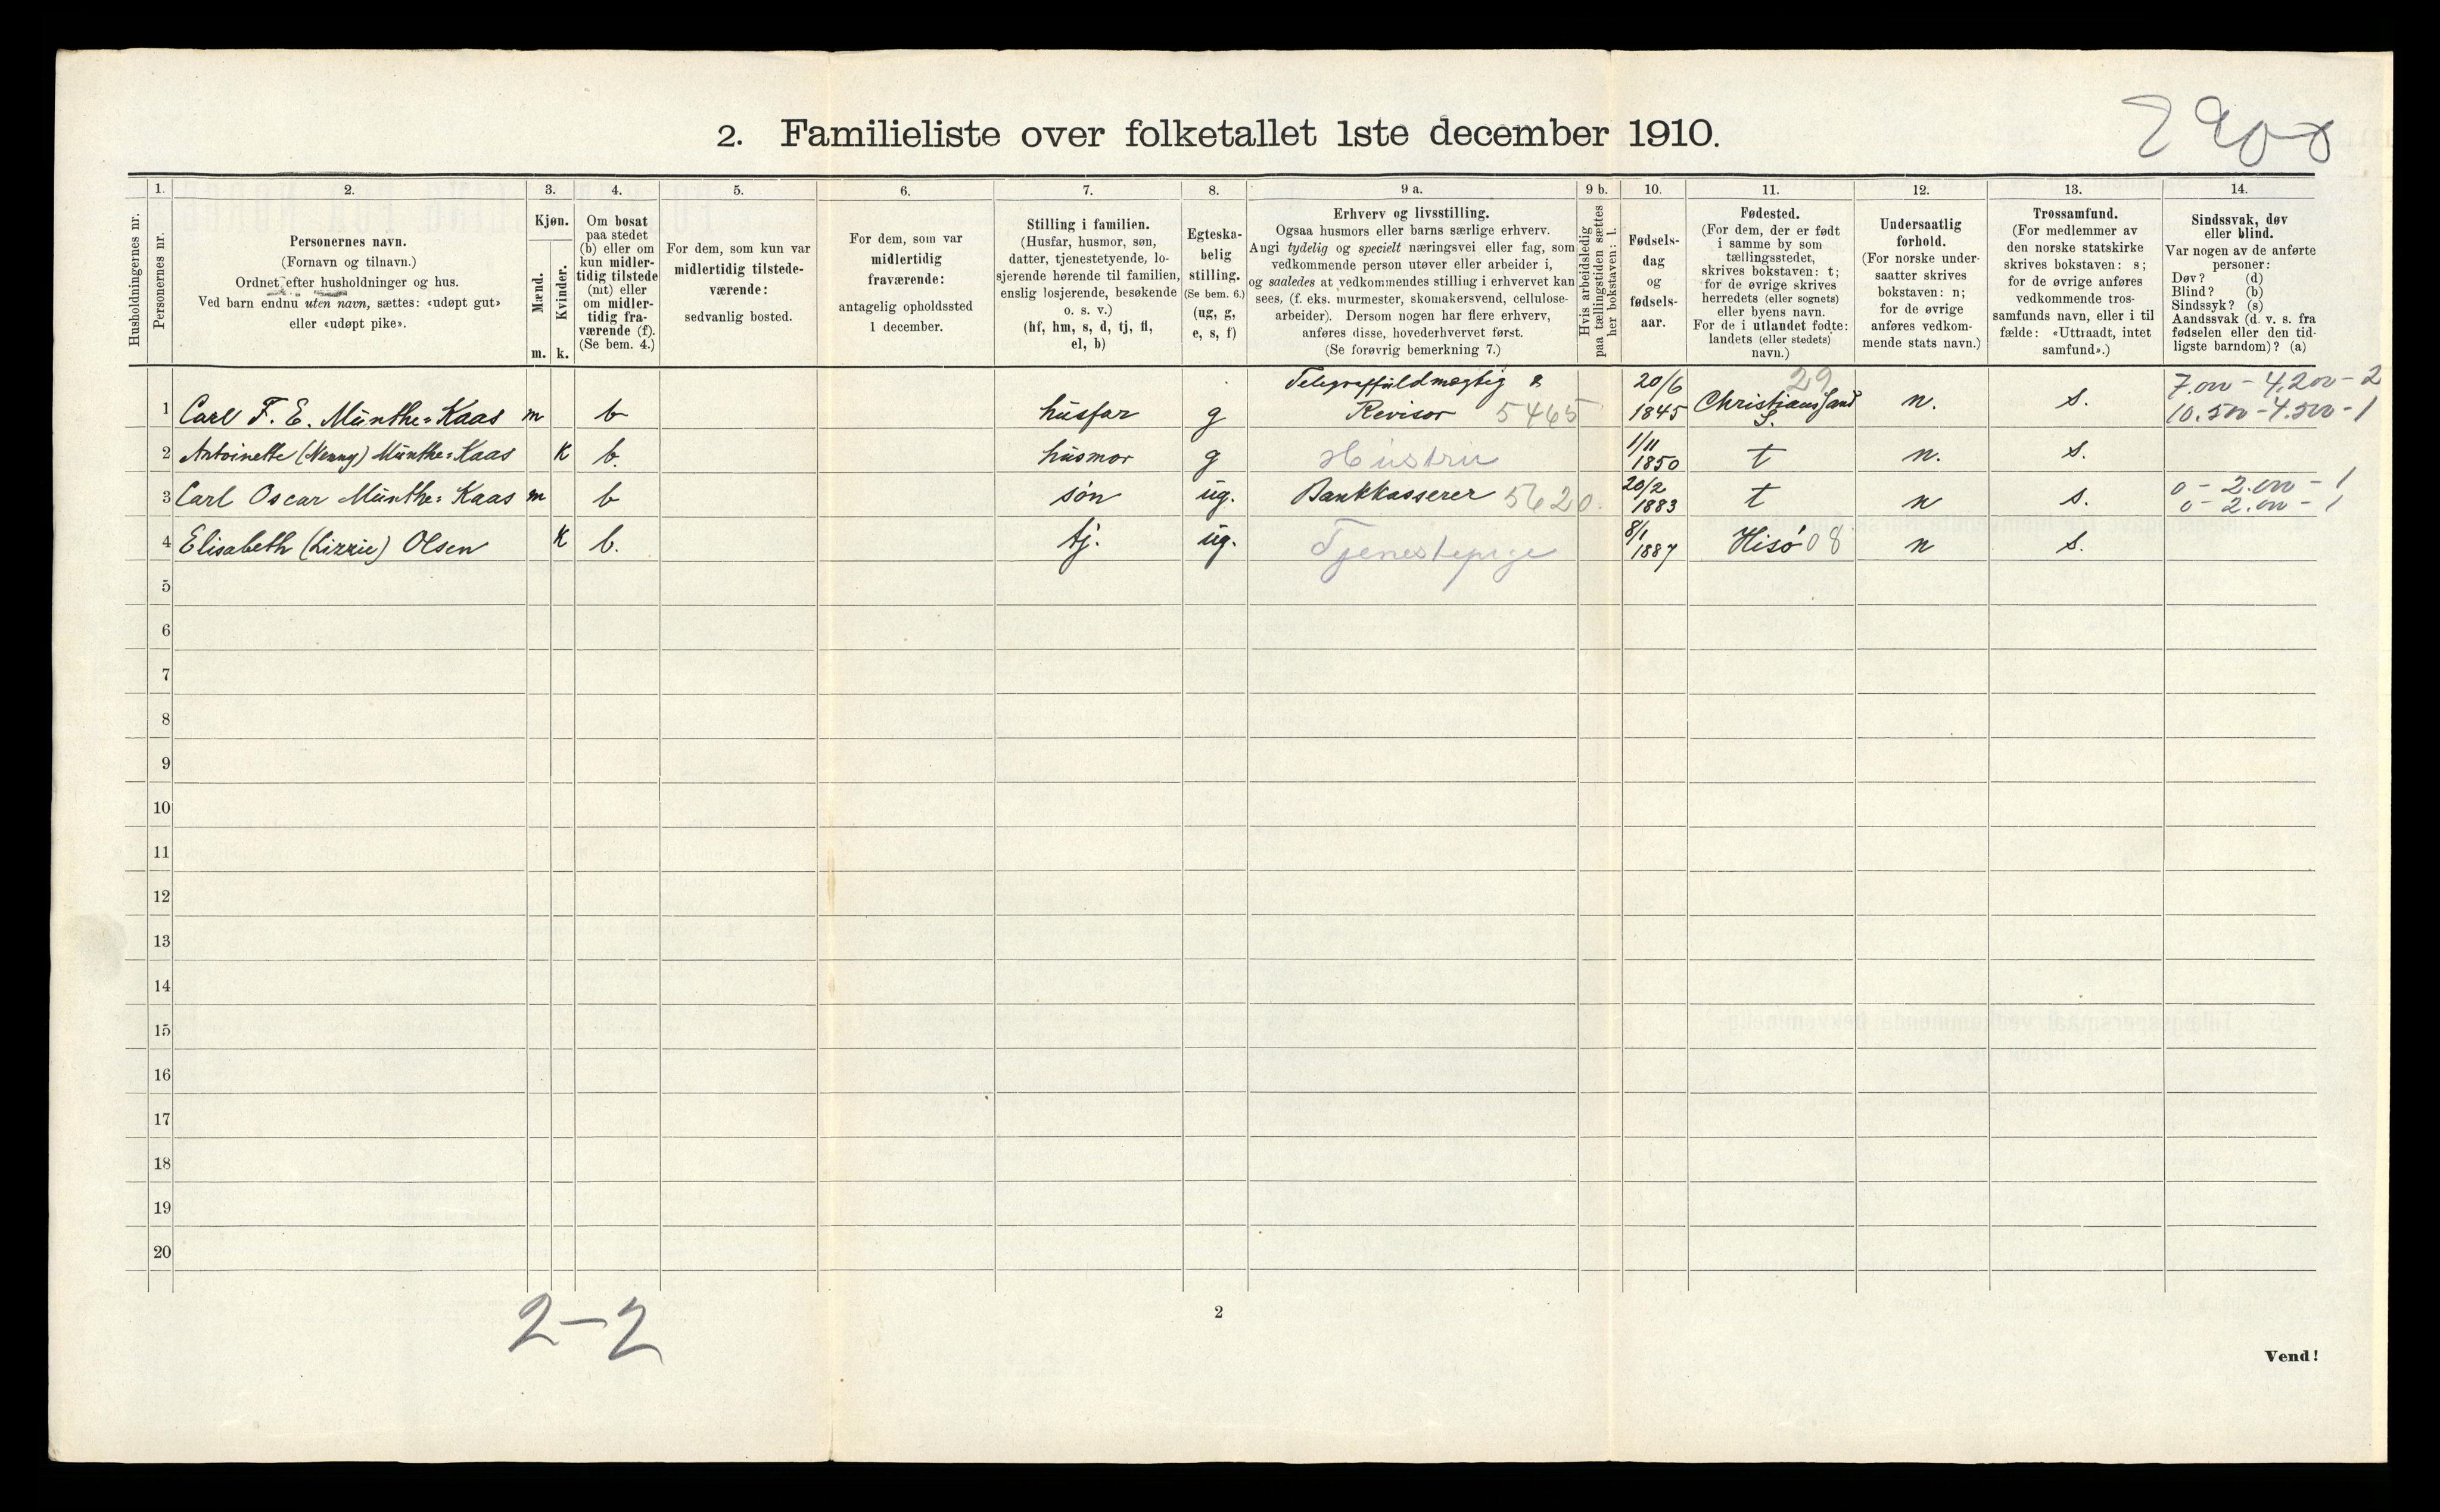 2. Familieliste over folketallet 1ste december 1910.
Husholdningernes nr.
1.
Personernes nr.
2.
Personernes navn.
(Fornavn og tilnavn.)
Ordnet efter husholdninger og hus.
Ved barn endnu uten navn, sættes: «udøpt gut»
eller «udøpt pike».
3.
Kjøn.
Mænd.
m.
Kvinder.
k.
4.
Om bosat
paa stedet
(b) eller om
kun midler-
tidig tilstede
(mt) eller
om midler-
tidig fra-
værende (f).
(Se bem. 4.)
5.
For dem, som kun var
midlertidig tilstede-
værende:
sedvanlig bosted.
6.
For dem, som var
midlertidig
fraværende:
antagelig opholdssted
1 december.
7.
Stilling i familien.
(Husfar, husmor, søn,
datter, tjenestetyende, lo-
sjerende hørende til familien,
enslig losjerende, besøkende
o. s. v.)
(hf, hm, s, d, tj, fl,
el, b)
8.
Egteska-
belig
stilling.
(Se bem. 6.)
(ug, g,
e, s, f)
9 a.
Erhverv og livsstilling.
Ogsaa husmors eller barns særlige erhverv.
Angi tydelig og specielt næringsvei eller fag, som
vedkommende person utøver eller arbeider i,
og saaledes at vedkommendes stilling i erhvervet kan
sees, (f. eks. murmester, skomakersvend, cellulose-
arbeider). Dersom nogen har flere erhverv,
anføres disse, hovederhvervet først.
(Se forøvrig bemerkning 7.)
9 b.
Hvis arbeidsledig
paa tællingstiden sættes
her bokstaven: l.
10.
Fødsels-
dag
og
fødsels-
aar.
11.
Fødested.
(For dem, der er født
i samme by som
tællingsstedet,
skrives bokstaven: t;
for de øvrige skrives
herredets (eller sognets)
eller byens navn.
For de i utlandet fødte:
landets (eller stedets)
navn.)
12.
Undersaatlig
forhold.
(For norske under-
saatter skrives
bokstaven: n;
for de øvrige
anføres vedkom-
mende stats navn.)
13.
Trossamfund.
(For medlemmer av
den norske statskirke
skrives bokstaven: s;
for de øvrige anføres
vedkommende tros-
samfunds navn, eller i til
fælde: «Uttraadt, intet
samfund».)
14.
Sindssvak, døv
eller blind.
Var nogen av de anførte
personer:
Døv? (d)
Blind? (b)
Sindssyk? (s)
Aandssvak (d. v. s. fra
fødselen eller den tid-
ligste barndom)? (a)
Telegraffuldmægtig & 20/6 29 7.000 - 4.200 - 2
1 Carl F. E. Münthe=Kaas m b husfar g Revisor 5465 1845 Christianssand S. n. s. 10.500 - 4.500 - 1
2 Antoinette (Nenny) Münthe=Kaas K b. husmor g Hustru 1/11 1850 t n. s.
3 Carl Oscar Münthe=Kaas m b søn ug. Bankkasserer 5620. 20/2 1883 t n s. 0 - 2.000 - 1
0 - 2.000 - 1
4 Elisabeth (Lizzie) Olsen K b. tj. ug. Tjenestepige 8/1 1887 Hisö 08 n s.
5
6
7
8
9
10
11
12
13
14
15
16
17
18
19
20
2-2
2
Vend!